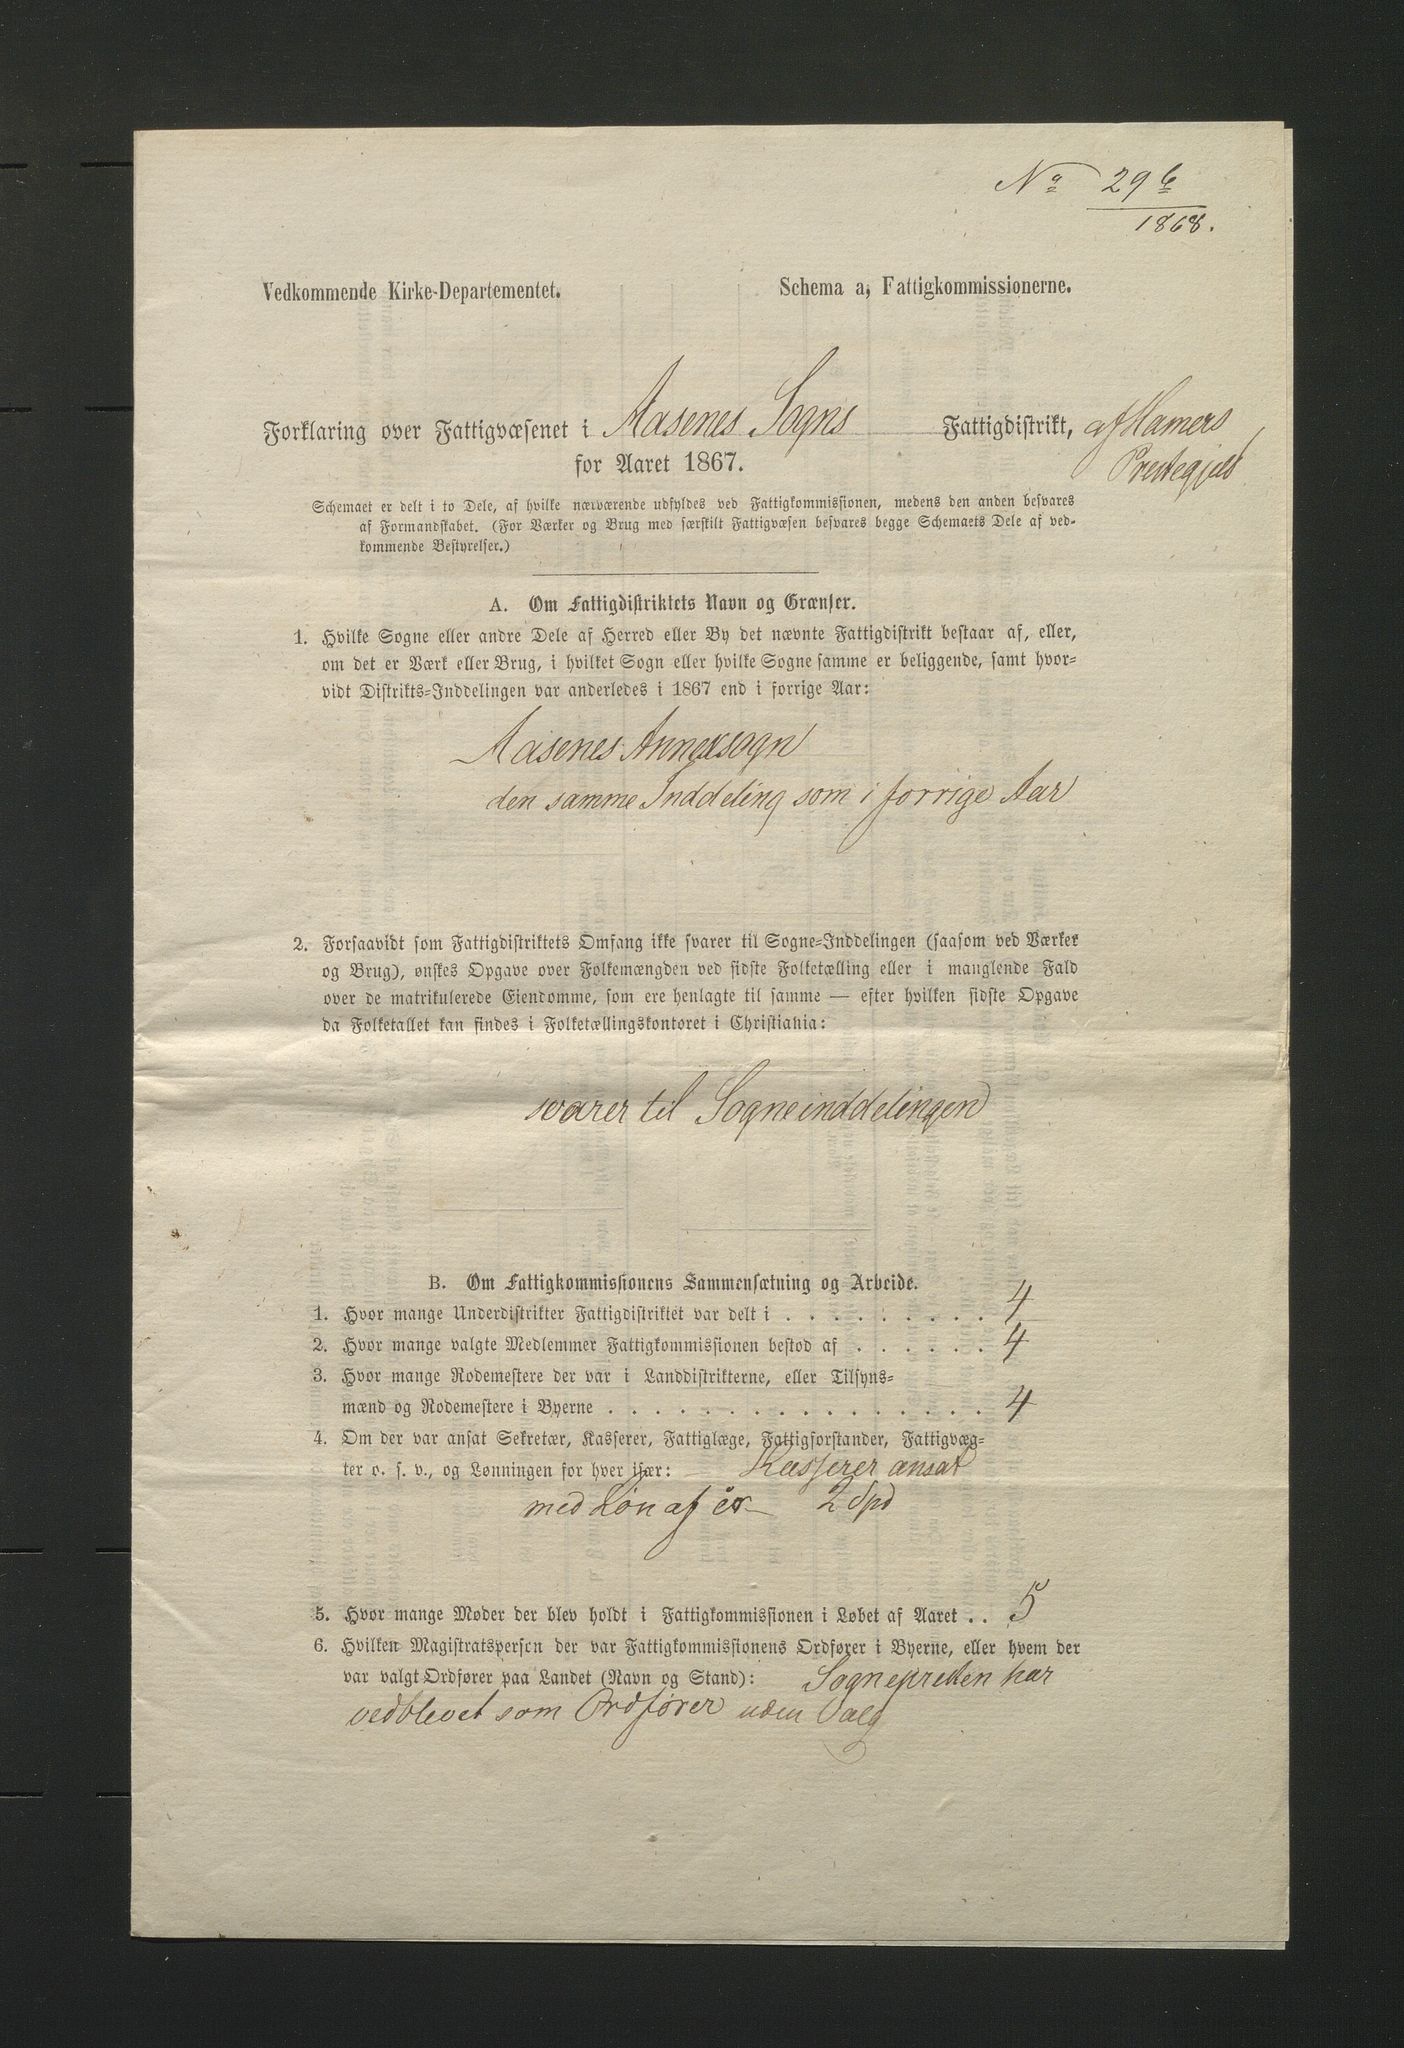 No 296
1868.
Vedkommende Kirke-Departementet.
Schema a, Fattigkommissionerne.
Forklaring over Fattigvæsenet i Aasenes Sogns Fattigdistrikt, af Hamers
Prestegjeld
for Aaret 1867.
Schemaet er delt i to Dele, af hvilke nærværende udfyldes ved Fattigkommissionen, medens den anden besvares
af Formandskabet. (For Værker og Brug med særskilt Fattigvæsen besvares begge Schemaets Dele af ved-
kommende Bestyrelser.)
A. Om Fattigdistriktets Navn og Grænser.
1. Hvilke Sogne eller andre Dele af Herred eller By det nævnte Fattigdistrikt bestaar af, eller,
om det er Værk eller Brug, i hvilket Sogn eller hvilke Sogne samme er beliggende, samt hvor-
vidt Distrikts-Inddelingen var anderledes i 1867 end i forrige Aar:
Aasenes Annexsogn
den samme Inddeling som i forrige Aar
2. Forsaavidt som Fattigdistriktets Omfang ikke svarer til Sogne-Inddelingen (saasom ved Værker
og Brug), ønskes Opgave over Folkemængden ved sidste Folketælling eller i manglende Fald
over de matrikulerede Eiendomme, som ere henlagte til samme — efter hvilken sidste Opgave
da Folketallet kan findes i Folketællingskontoret i Christiania:
svarer til Sogneinddelingen
B. Om Fattigkommissionens Sammensætning og Arbeide.
1. Hvor mange Underdistrikter Fattigdistriktet var delt i . . . . . . . . . 4
2. Hvor mange valgte Medlemmer Fattigkommissionen bestod af . . . . . . 4
3. Hvor mange Rodemestere der var i Landdistrikterne, eller Tilsyns-
mænd og Rodemestere i Byerne . . . . . . . . . . . . . . . . 4
4. Om der var ansat Sekretær, Kasserer, Fattiglæge, Fattigforstander, Fattigvæg-
ter o. s. v., og Lønningen for hver især: Kasserer ansat
med Løn af 2 Spd
5. Hvor mange Møder der blev holdt i Fattigkommissionen i Løbet af Aaret . . 5
6. Hvilken Magistratsperson der var Fattigkommissionens Ordfører i Byerne, eller hvem der
var valgt Ordfører paa Landet (Navn og Stand): Sognepresten har
vedblevet som Ordfører uden Valg